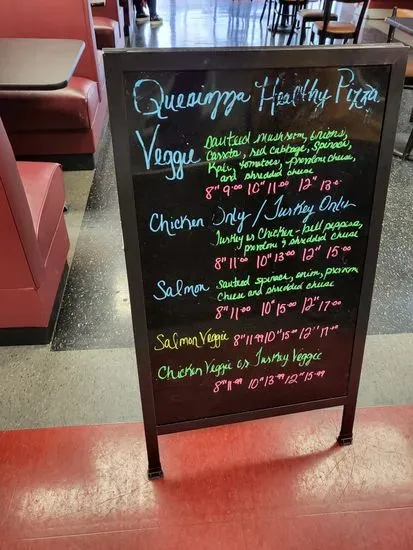 Quesizza Healthy Pizza
Veggie
Sauteed mushroom, onions,
carrots, red cabbage, spinach,
Kale, tomatoes, provolone cheese,
and shredded cheese
8" 9.00 10" 11.00 12" 13.0
Chicken Only / Turkey Only
Turkey or Chicken - bell peppers,
provolone & shredded cheese
8" 11.00 10" 13.00 12" 15.00
Salmon
Sauteed spinach, onion, provolone
cheese and shredded cheese
8" 11.00 10" 15.00 12" 17.00
Salmon Veggie 8" 11.99 10" 15.00 12" 17.00
Chicken Veggie or Turkey Veggie
8" 11.99 10" 13.99 12" 15.99